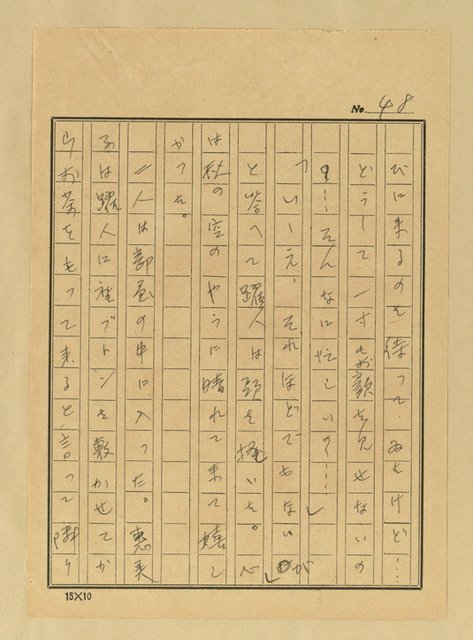 No. 48
びに来るのを待ってゐたけど…
どうして一寸もお顔を見せないの
？…そんなに忙しいの…」
「いゝえ、それほどでもないが
と答へて躍人は頭を掻いた。心
は秋の空のやうに晴れて来て嬉し
かった。
二人は部屋の中に入った。恵美
子は躍人に座ブトンを敷かせてか
らお茶をもって来ると言って隣り
15×10